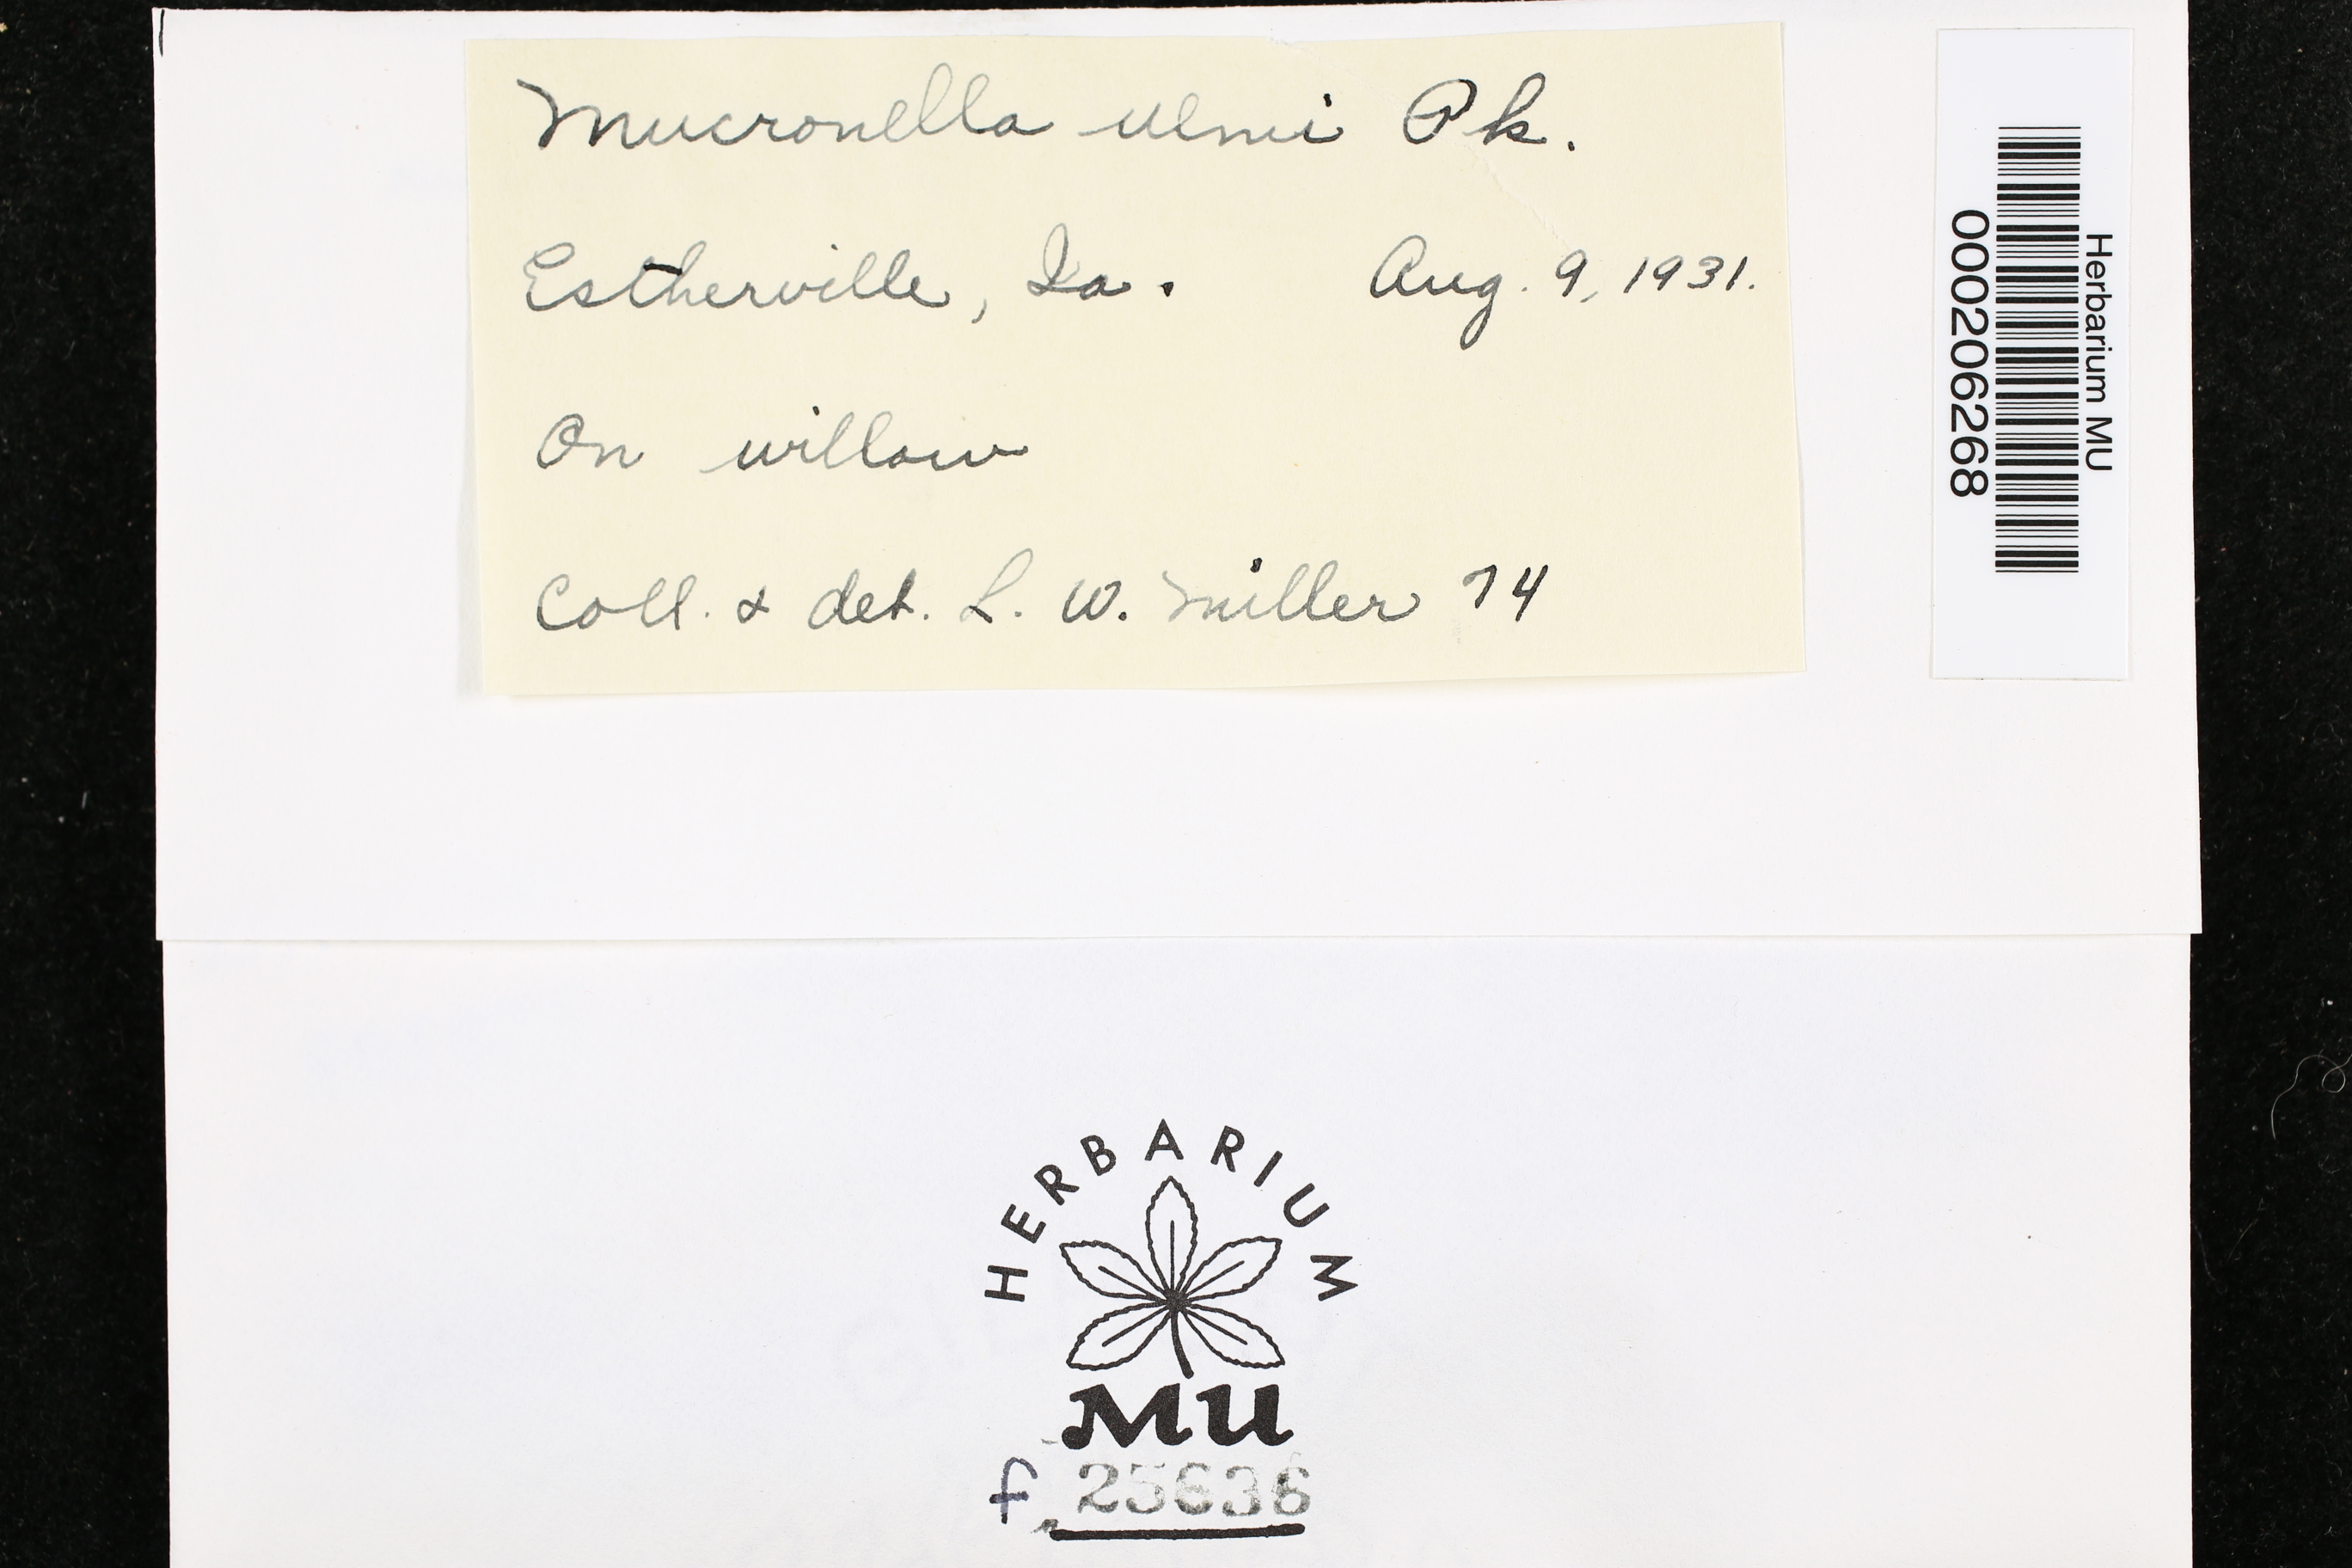 Mucronella ulmi Pk.
Estherville, Ia. Aug. 9, 1931.
On willow
Coll. & det. L. W. Miller 74
Herbarium MU
000206268
HERBARIUM
MU
f. 25636